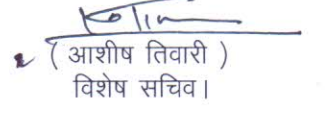 ( आशीष तिवारी )
विशेष सचिव।